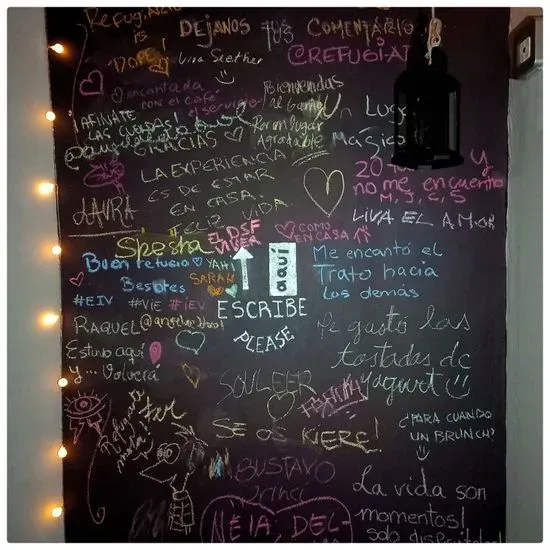 DEJANOS TUS COMENTARIO
is
DOPE!
@REFUGIAT
Viva Seether
encantada
con el café
y el servicio!
Bienvenidas
al Gamo!
Por un lugar
Agradable
Lugar
Mágico
AFINATE
LAS CUERDAS!
GRACIAS
LA EXPERIENCIA
ES DE ESTAR
EN CASA
FELIZ VIDA
20
Y
no me encuentro
M, J, C, S
VIVA EL AMOR
LAURA
COMO
EN CASA
Buen refugio
YAH!
SARA
Besotes
#EIV #VIE #iEV
aquí
ESCRIBE
PLEASE
Me encantó el
Trato hacia
los demás
RAQUEL
Estuvo aquí
y... Volverá
Me gustó las
tostadas de
yogurt
SOULEER
SE OS KIERE!
¿PARA CUANDO
UN BRUNCH?
GUSTAVO
La vida son
momentos!
solo
NEIA DEL-